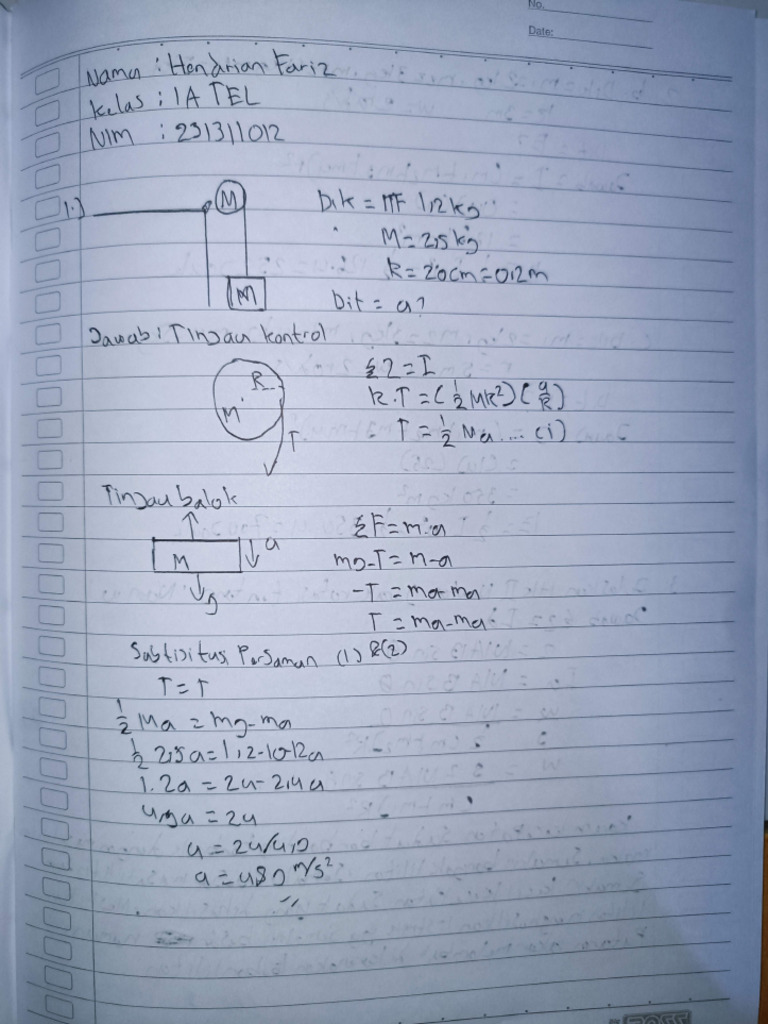 No.
Date:
Nama : Hendrian Fariz
Kelas : 1A TEL
NIM : 231311012
1.) M Dik = m= 1,2 kg
M = 2,5 kg
R = 20 cm = 0,2 m
M Dit = a?
Jawab : Tinjau kontrol
R Στ = I
M R.T = (½ MR²) (a/R)
T T = ½ Ma ... (i)
Tinjau balok
ΣF = m.a
M a mg-T = m-a
g -T = ma-ma
T = ma-ma
Subtisitusi Persaman (1) &(2)
T = T
½ Ma = mg-ma
½ 2,5a = 1,2-10-12a
1.2a = 24-2,4a
4,9a = 24
a = 24/4,9
a = 4,89 m/s²